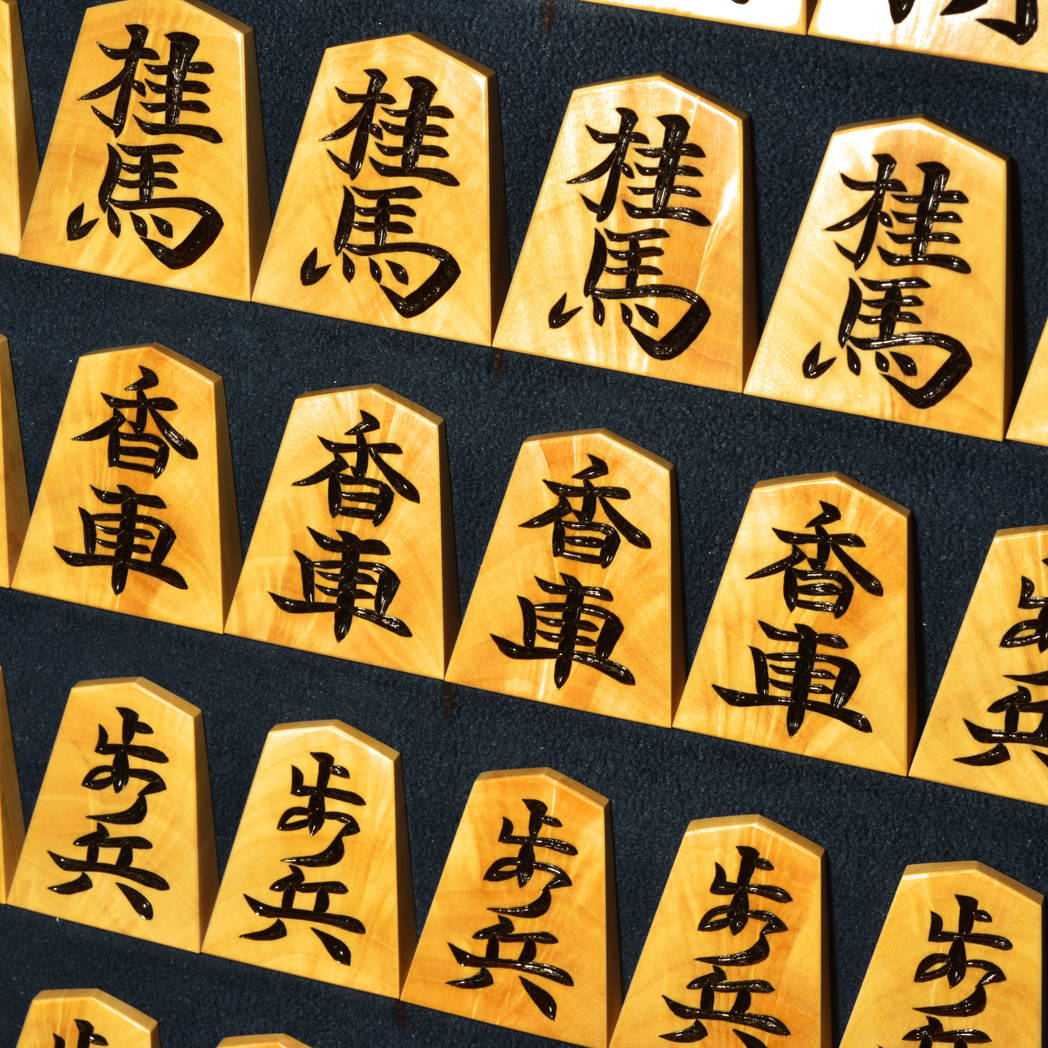 桂馬 桂馬 桂馬 桂馬
香車 香車 香車 香車
歩兵 歩兵 歩兵 歩兵 歩兵 歩兵